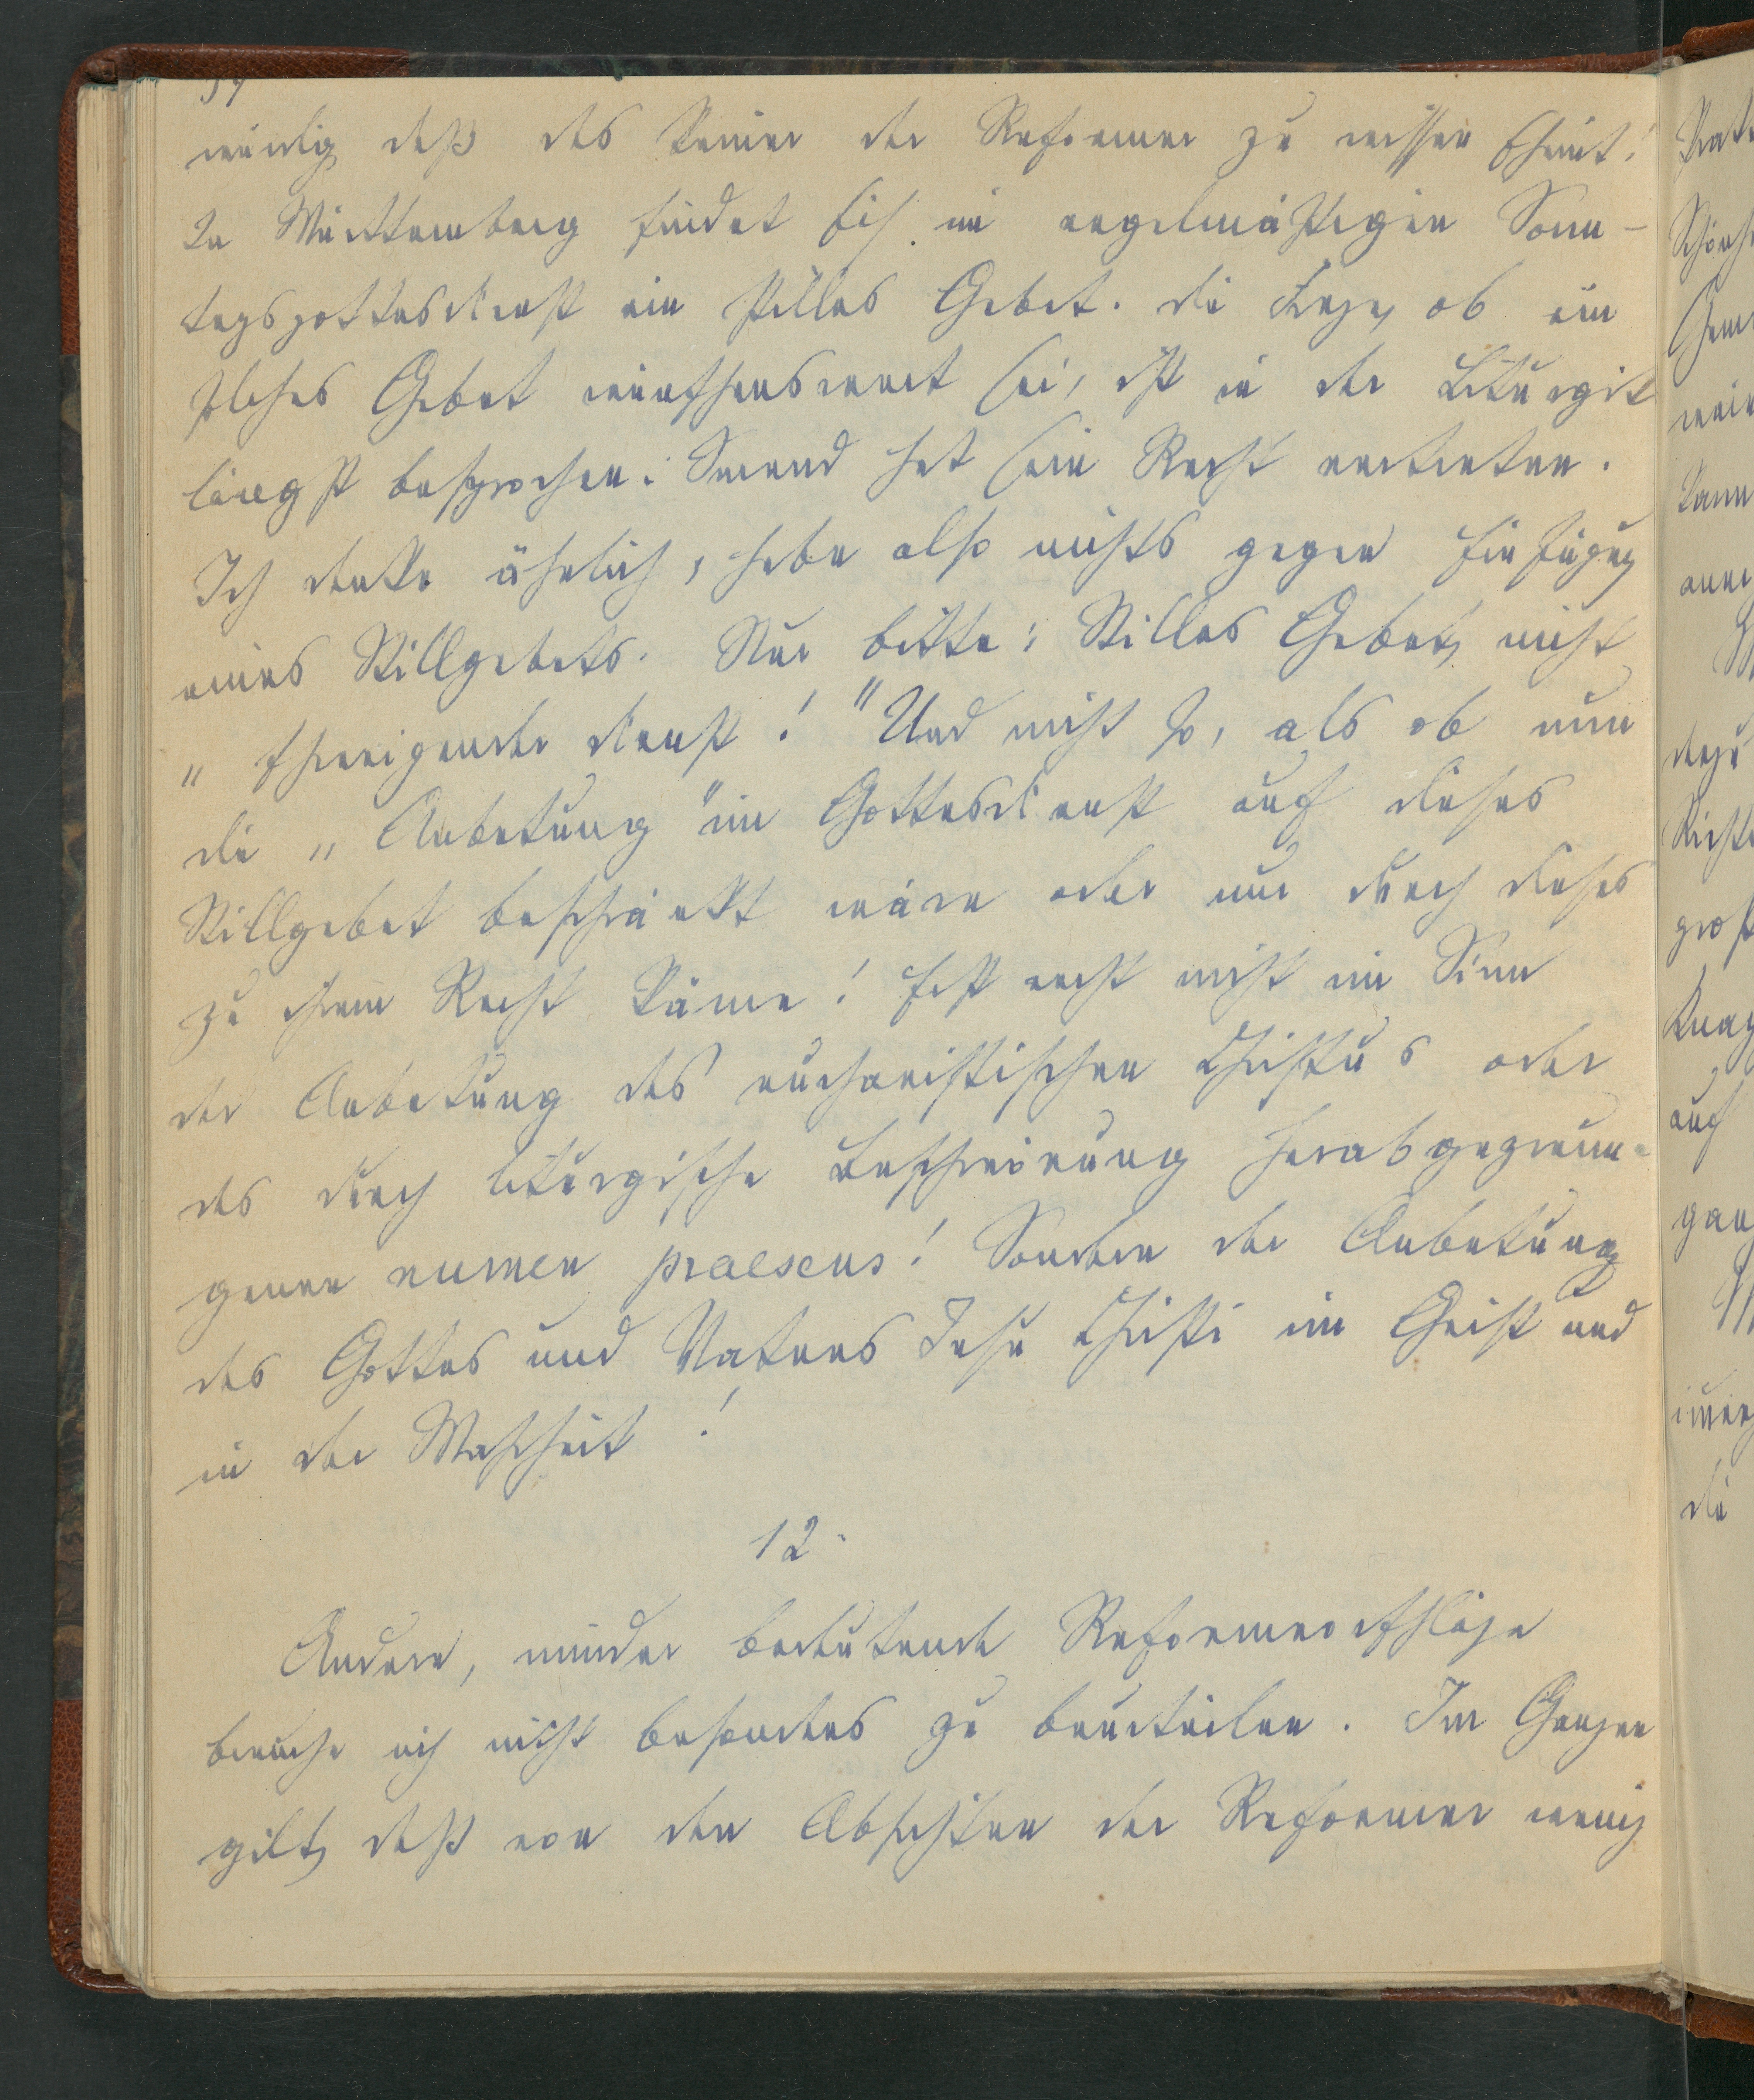 daß das keiner der Reformer zu wissen scheint!
In Württemberg findet sich im regelmäßigen Sonn-
tagsgottesdienst ein stilles Gebet. Die Frage, ob ein
solches Gebet wünschenswert sei, ist in der Liturgik
längst besprochen. Smend hat sein Recht vertreten.
Ich denke ähnlich, habe also nichts gegen Einfügung
eines Stillgebets. Nur bitte: Stilles Gebet, nicht
„schweigender Dienst!“ Und nicht so, als ob nun
die „Anbetung“ im Gottesdienst auf dieses
Stillgebet beschränkt wäre oder nur durch dieses
zu ihrem Recht käme! Erst recht nicht im Sinn
der Anbetung des eucharistischen Christus oder
des durch liturgische Beschwörung herabgezwun-
genen numen praesens! Sondern der Anbetung
des Gottes und Vaters Jesu Christi im Geist und
in der Wahrheit!
12.
Andere, minder bedeutende Reformvorschläge
brauche ich nicht besonders zu beurteilen. Im Ganzen
gilt, daß von den Absichten der Reformer wenig